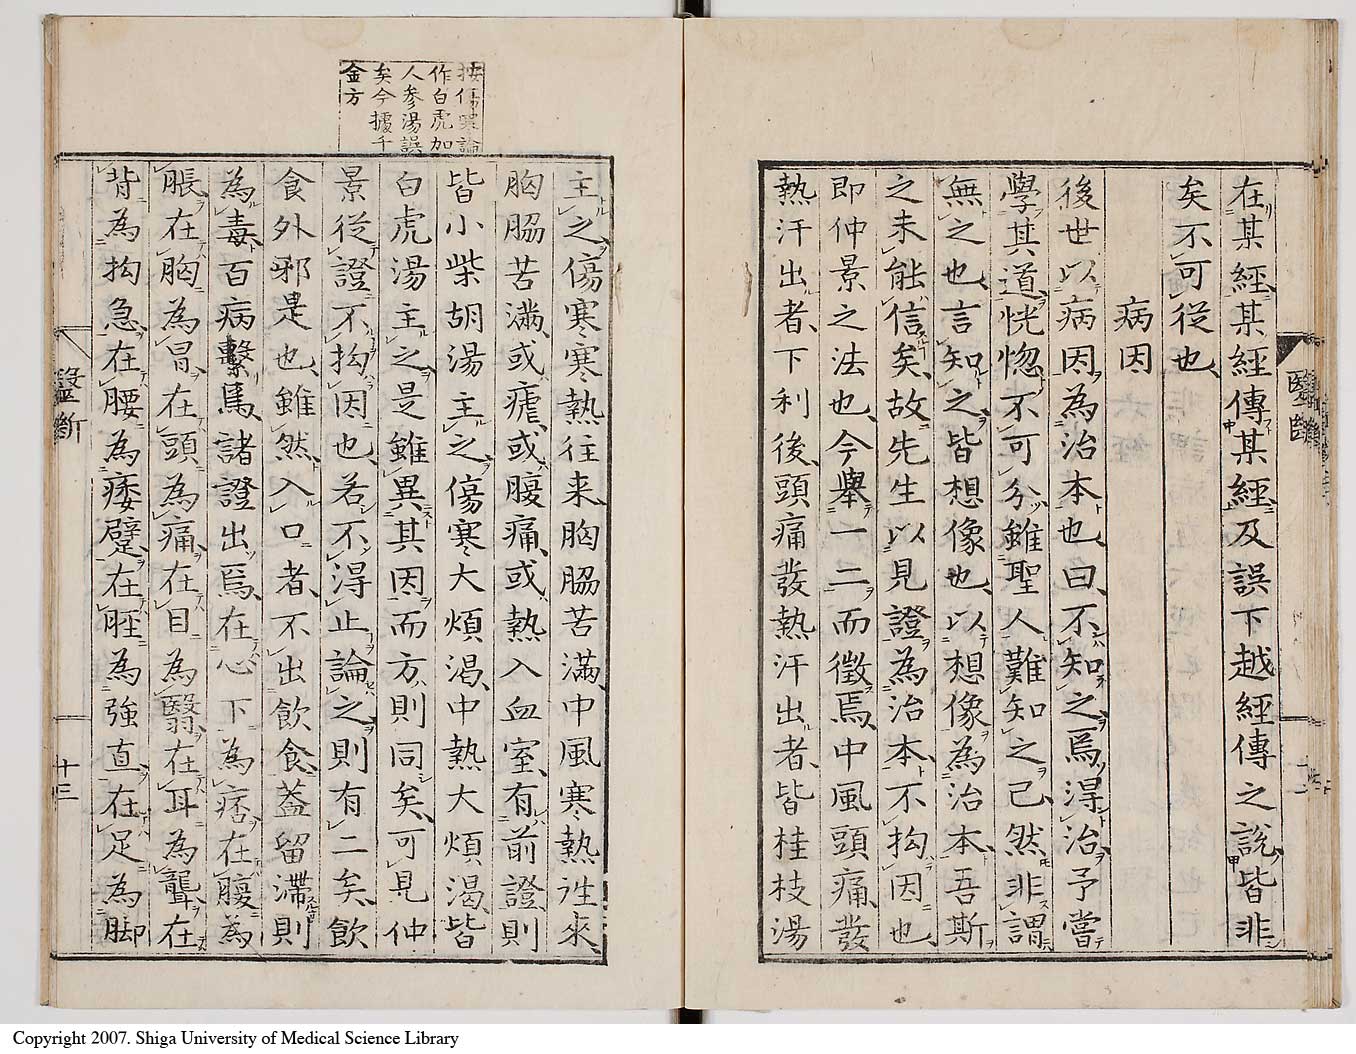 在某經某經傳某經及誤下越經傳之說皆非
矣不可從也
病因
後世以病因為治本也曰不知之焉淂治予嘗
學其道恍惚不可分雖聖人難知之已然非謂
無之也言知之皆想像也以想像為治本吾斯
之未能信矣故先生以見證為治本不拘因也
即仲景之法也今舉一二而徵焉中風頭痛發
熱汗出者下利後頭痛發熱汗出者皆桂枝湯
醫斷
主之傷寒寒熱往来胸脇苦滿中風寒熱往來
胸脇苦滿或瘧或腹痛或熱入血室有前證則
皆小柴胡湯主之傷寒大煩渴中熱大煩渴皆
白虎湯主之是雖異其因而方則同矣可見仲
景從證不拘因也若不淂止論之則有二矣飲
食外邪是也雖然入口者不出飲食蓋留滯則
為毒百病繫焉諸證出焉在心下為痞在腹為
脹在胸為冒在頭為痛在目為翳在耳為聾在
背為拘急在腰為痿躄在脛為強直在足為脚
按傷寒論
作白虎加
人參湯誤
矣今據千
金方
醫斷
十三
Copyright 2007. Shiga University of Medical Science Library